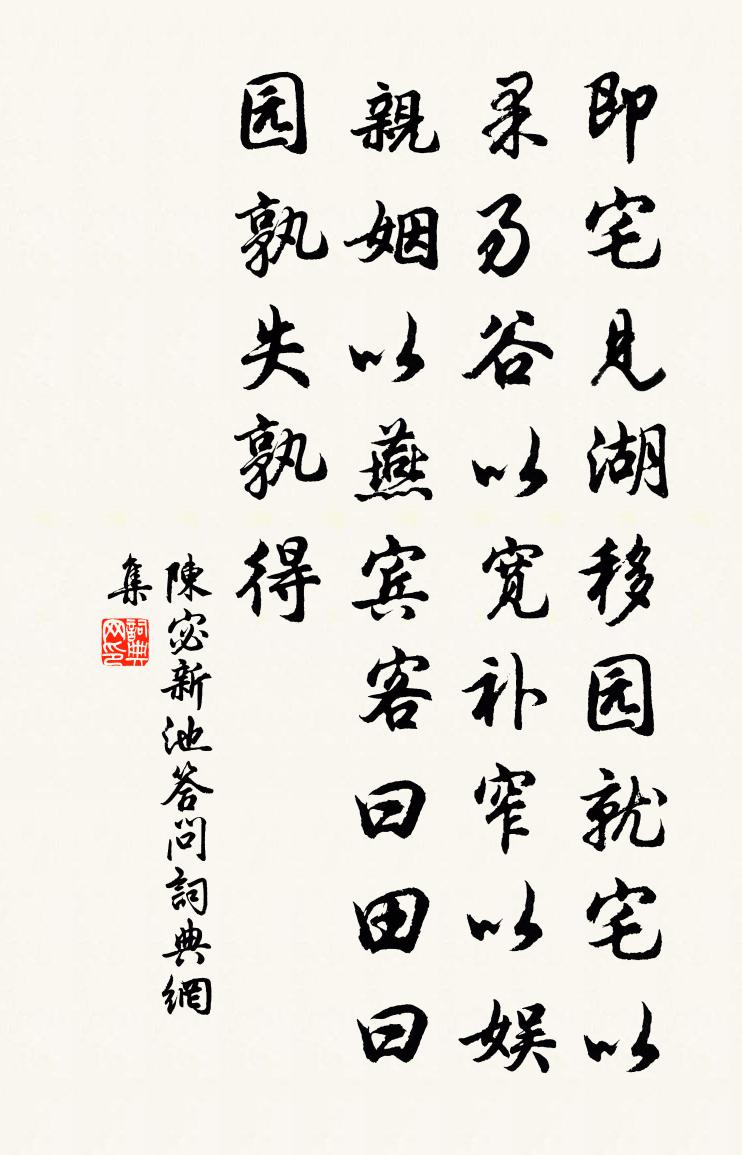 即宅見湖移园就宅以
果易谷以宽补窄以娱
親姻以燕宾客曰田曰
园孰失孰得
陳宓新池答问詞典網
集
詞典
网印